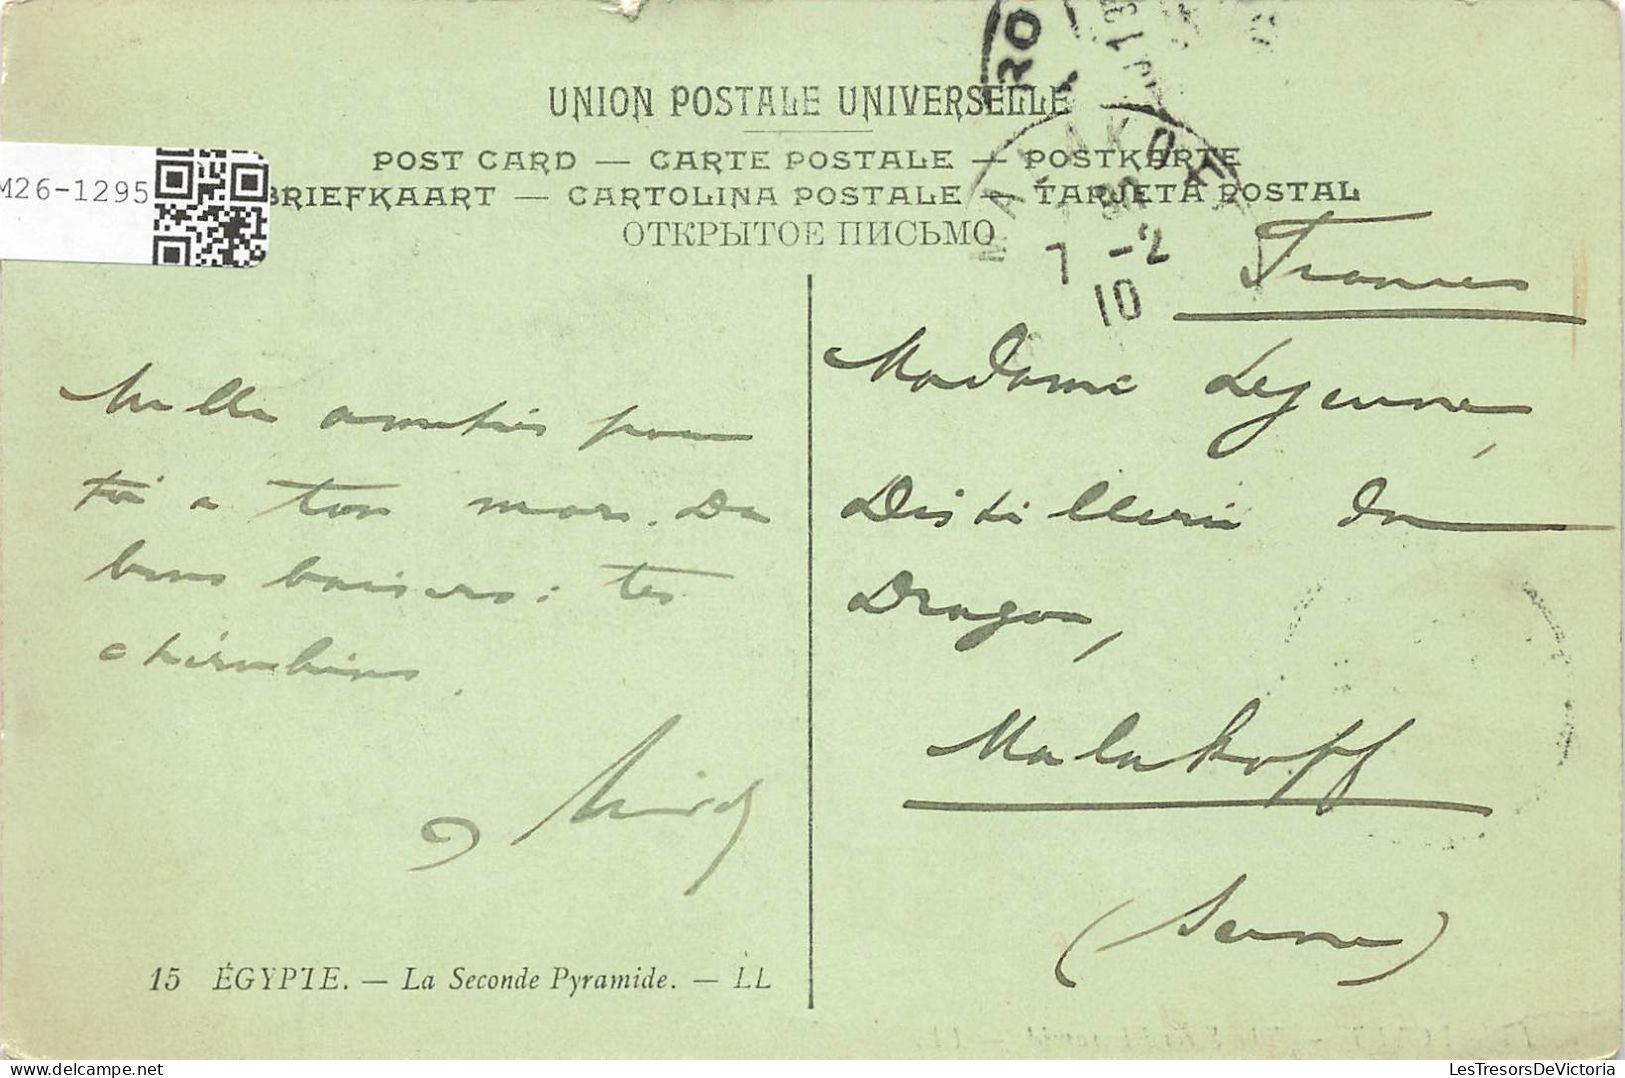 UNION POSTALE UNIVERSELLE
POST CARD — CARTE POSTALE — POSTKARTE
BRIEFKAART — CARTOLINA POSTALE — TARJETA POSTAL
ОТКРЫТОЕ ПИСЬМО
M26-1295
RO
MALAKOFF
7 -2
10
France
Madame Lejeune,
Distillerie du
Dragon,
Malakoff
(Seine)
Mille amitiés pour
toi a ton mari. De
bons baisers: tes
cherubins.
15 ÉGYPTE. — La Seconde Pyramide. — LL
www.LesTresorsDeVictoria.com